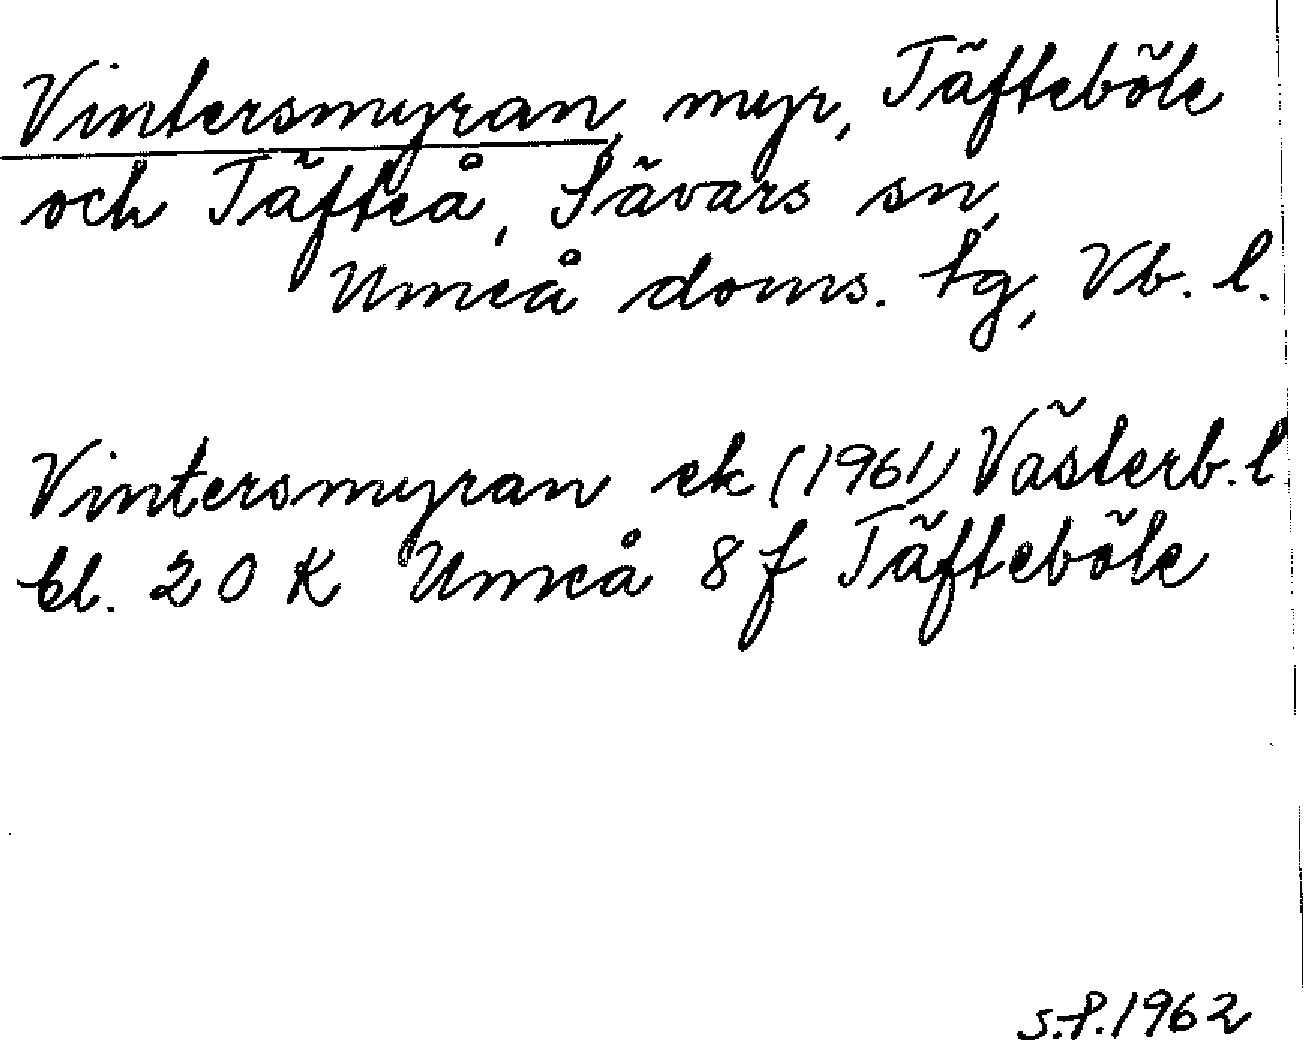 Vintersmyran, myr, Täfteböle
och Täfteå, Sävars sn,
Umeå doms. tg, Vb. l.
Vintersmyran ek (1961) Västerb. l
bl. 20 K Umeå 8 f Täfteböle
S.P. 1962